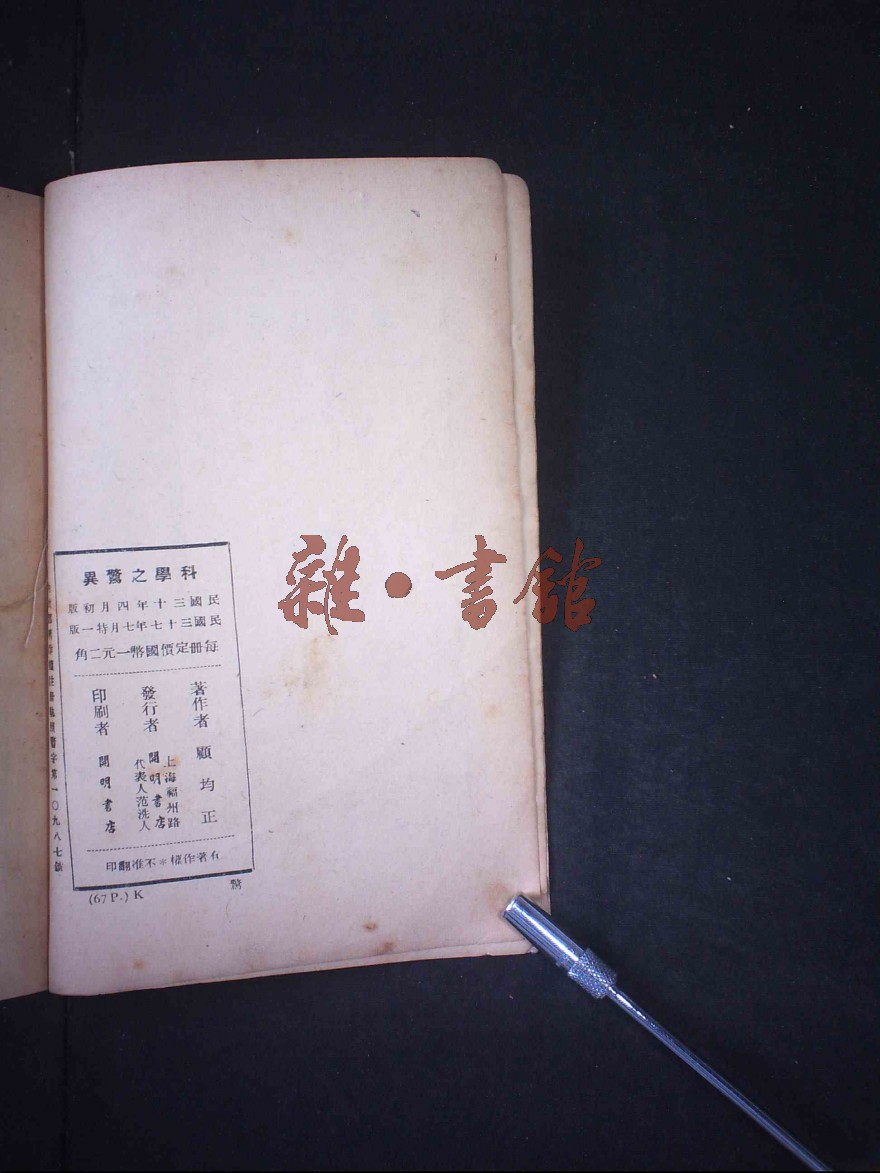 科學之驚異
民國三十年四月初版
民國三十七年七月特一版
每冊定價國幣一元二角
著作者 顧均正
發行者 上海福州路 開明書店 代表人范洗人
印刷者 開明書店
有著作權*不准翻印
(67 P.) K
驚
字第一〇九八七號
雜·書館